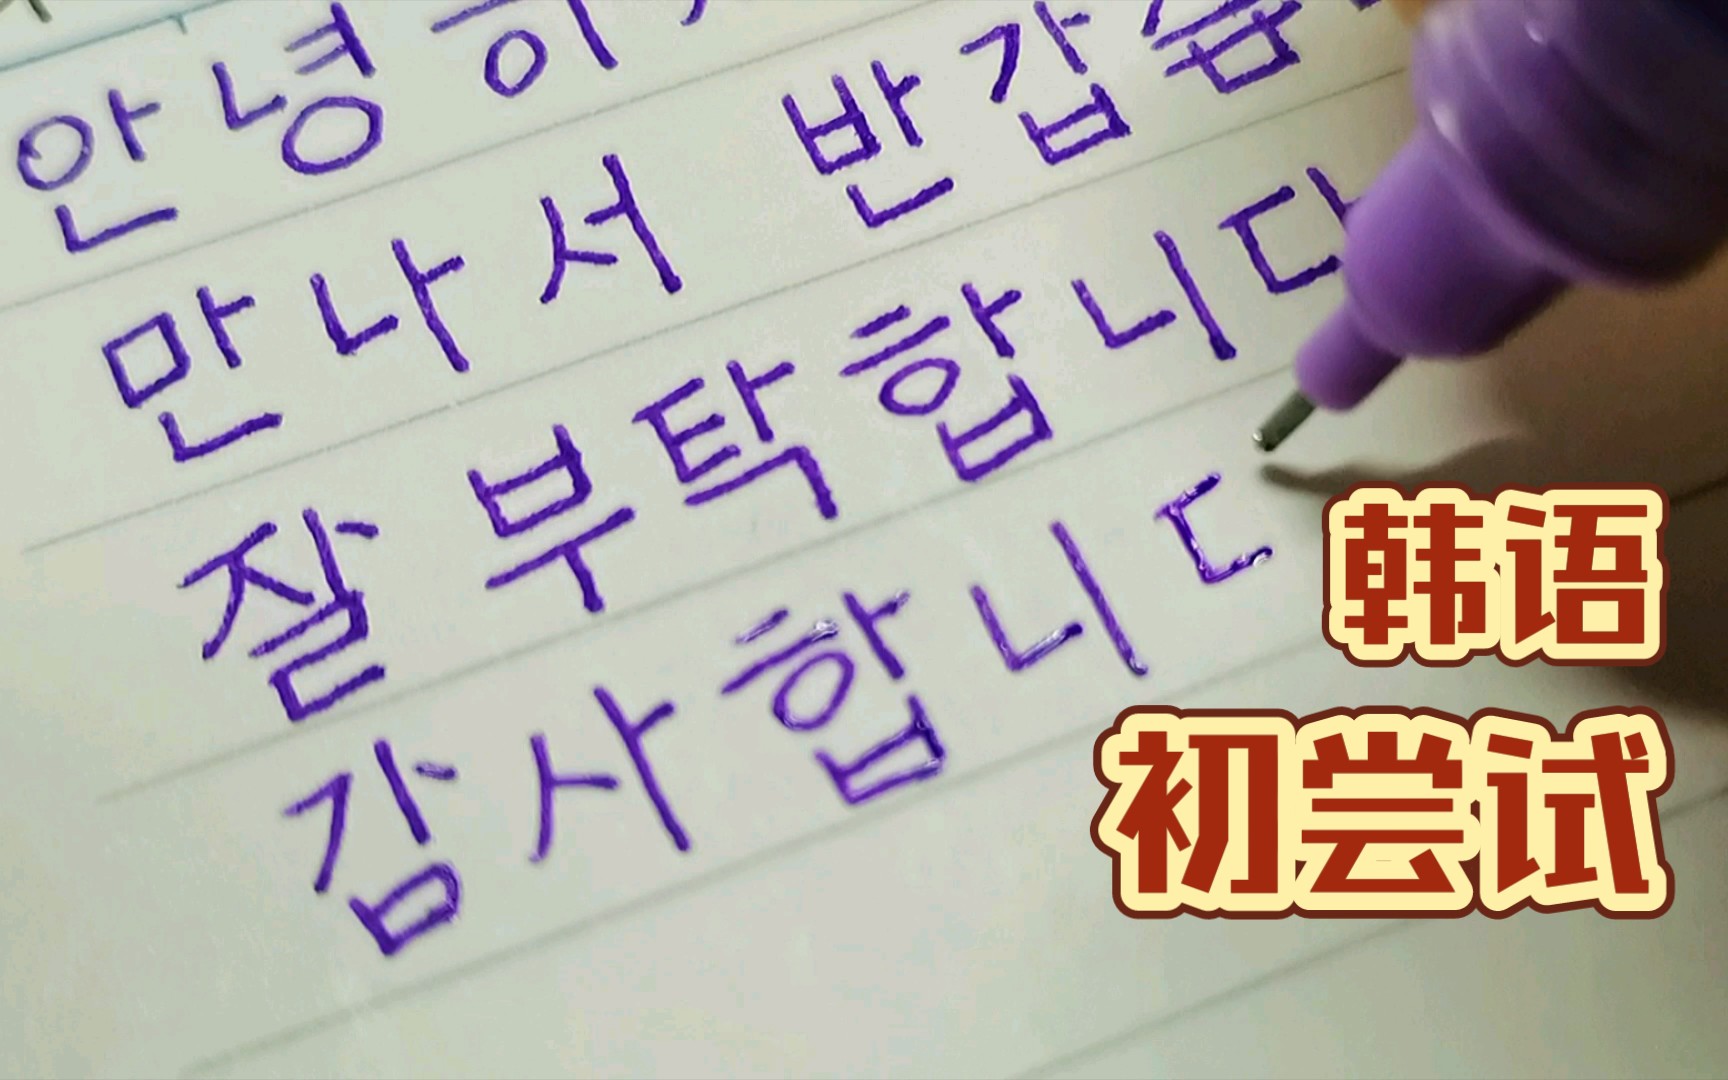 안녕
만나서 반갑습
잘 부탁합니다
감사합니ㄷ
韩语
初尝试